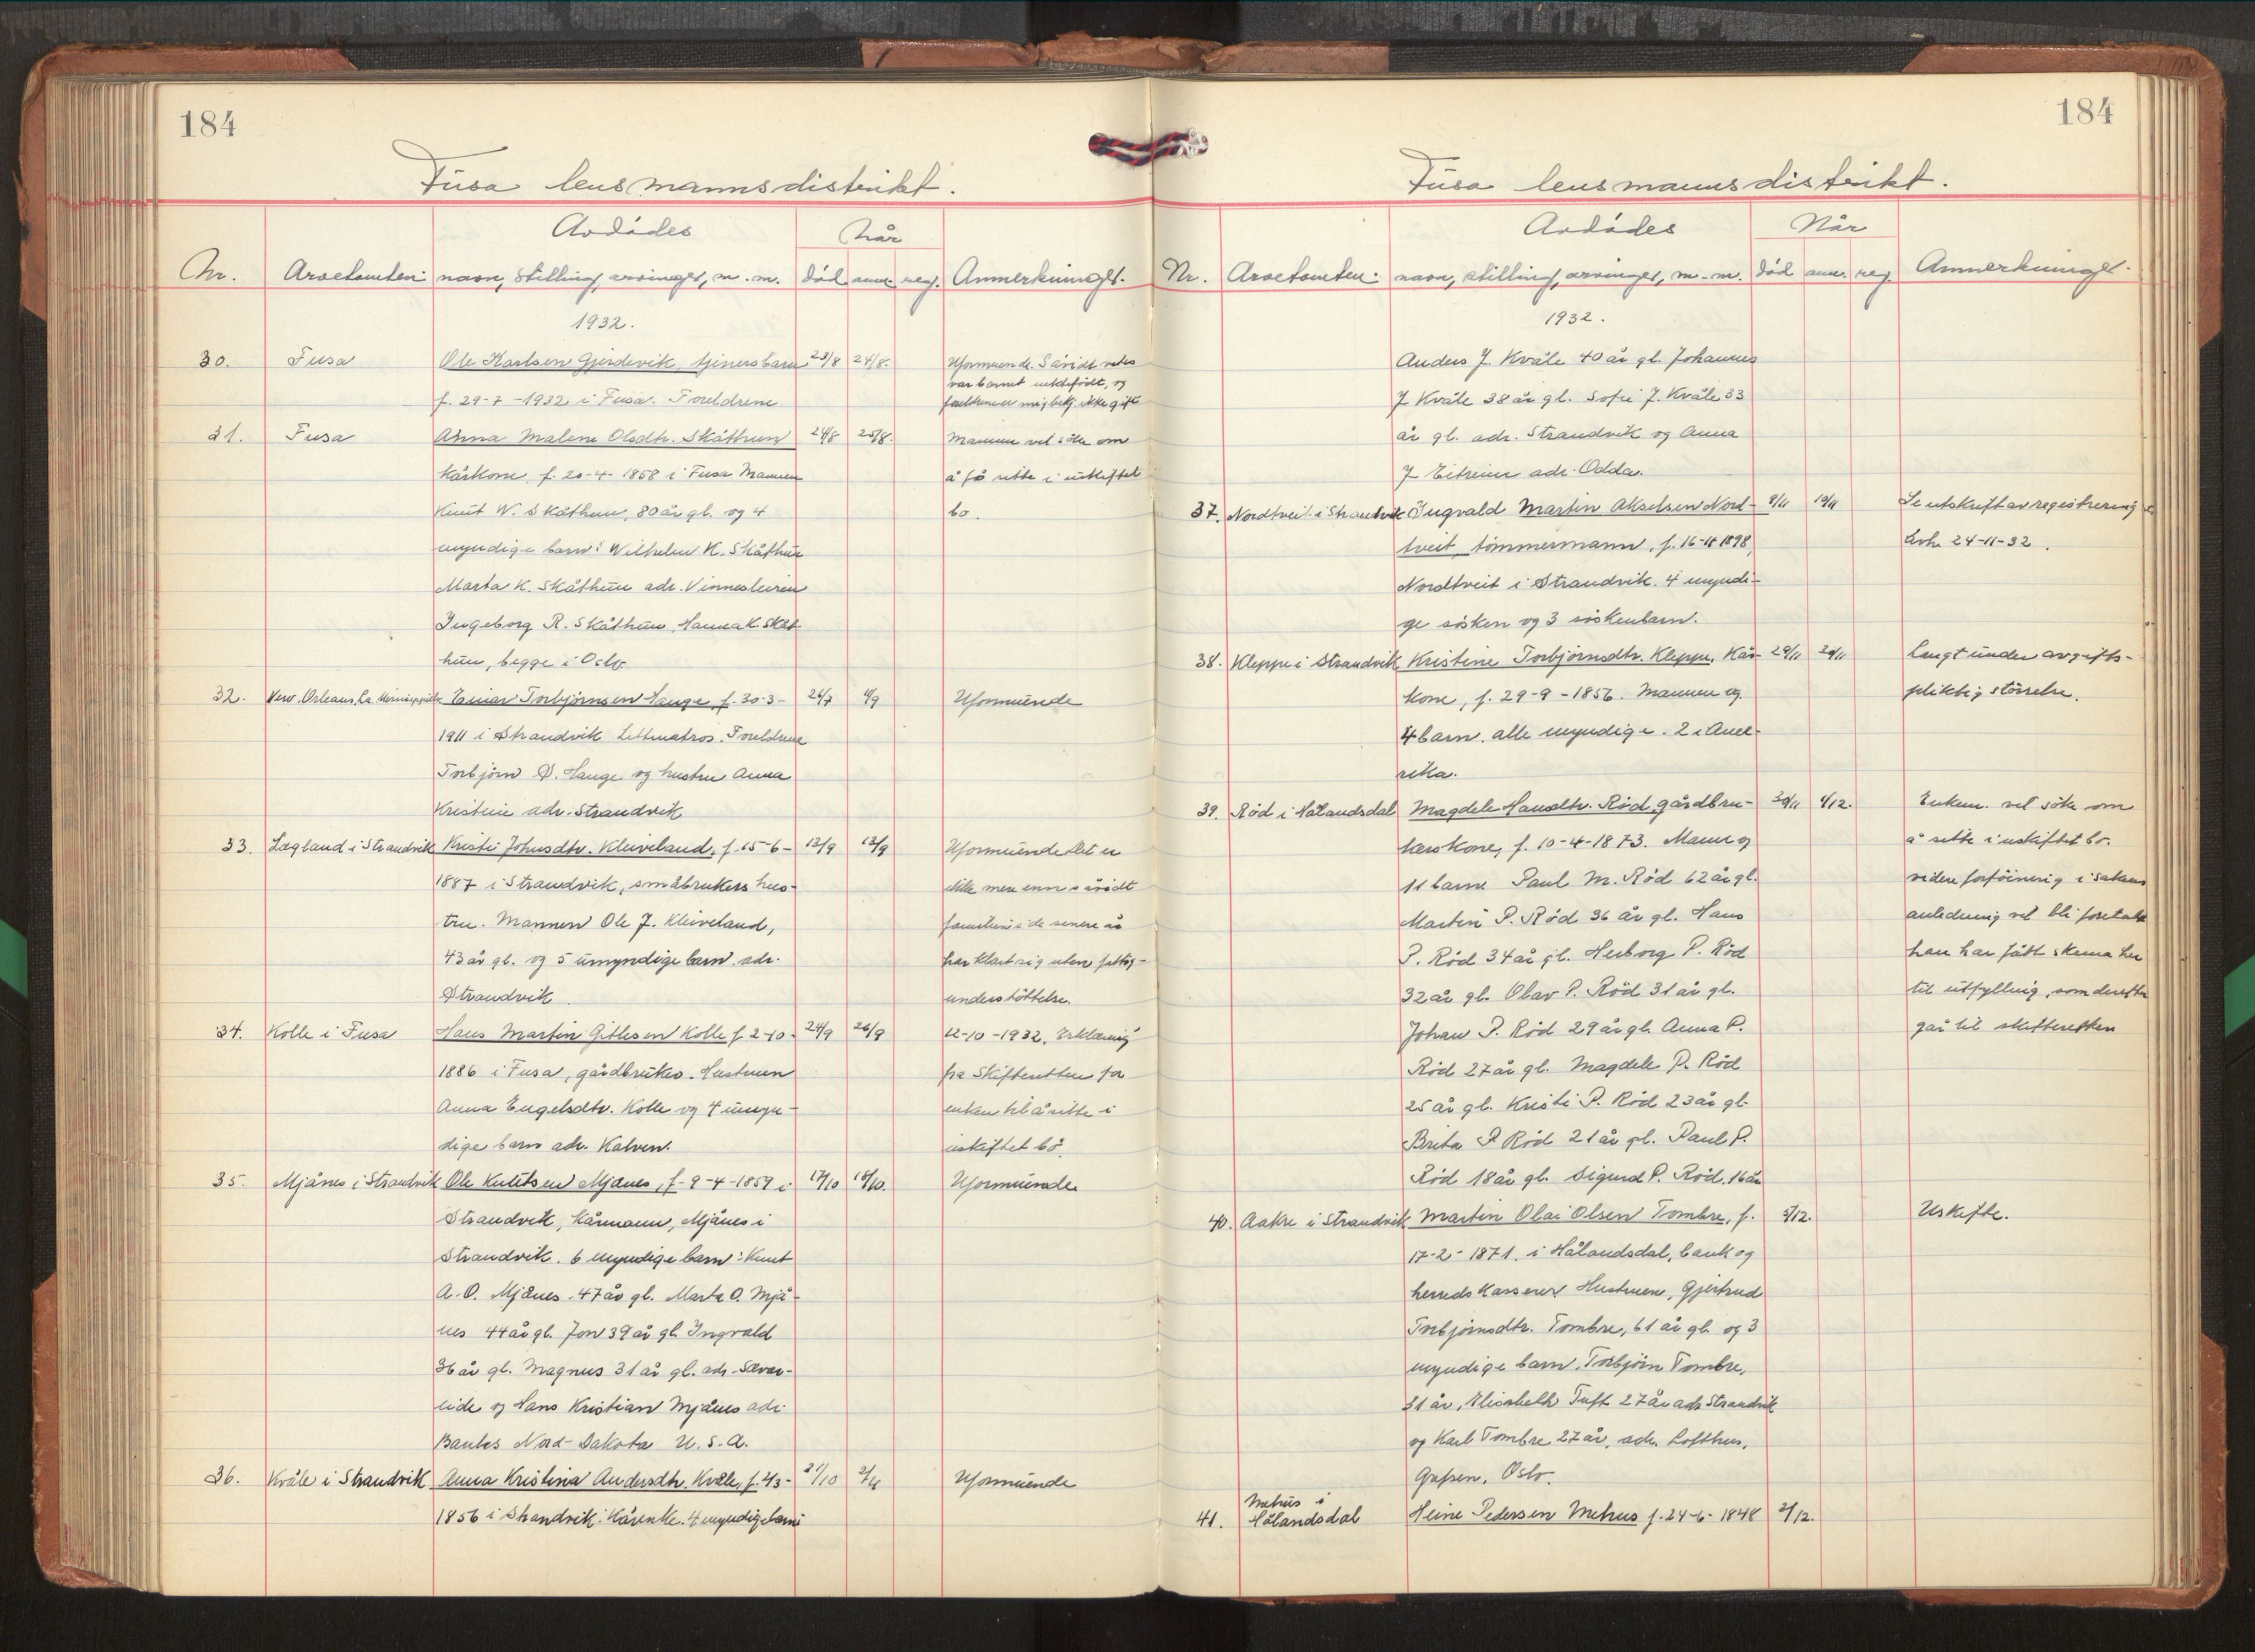 184
Fusa lensmannsdistrikt.
Avdødes
Når
Nr. Arvetomten: navn, stilling, arvinger, m. m. død anm. reg. Anmerkninger.
1932.
30. Fusa Ole Karlsen Gjerdevik, tjenersbarn 23/8 24/8. Uformuende. Såvidt vites
var barnet uektefødt, og
f. 29-7-1932 i Fusa. Foreldrene
foreldrene er mig bekj. ikke gift
31. Fusa Anna Malene Olsdtr. Skåthun 24/8 25/8. Mannen vil søke om
kårkone, f. 20-4-1858 i Fusa Mannen å få sitte i uskiftet
Knut W. Skåthun, 80 år gl. og 4 bo.
myndige barn: Wilhelm K. Skåthun
Marta K. Skåthun adr. Vinnesleiren
Ingeborg R. Skåthun, Hanna K. Skåt-
hun, begge i Oslo.
32. New. Orleans, La. Einar Torbjørnsen Hauge, f. 30-3- 26/7 Uformuende
1911 i Strandvik Lettmatros. Foreldrene
Torbjørn D. Hauge og hustru Anna
Kristine adr. Strandvik
33. Lægland i Strandvik Kristi Johnsdtr. Kleiveland, f. 15-6- 13/9 13/9 Uformuende Det er
1887 i Strandvik, småbrukers hus- ikke mere enn såvidt
tru. Mannen Ole J. Kleiveland, familien i de senere år
43 år gl. og 5 umyndige barn. adr. har klart sig uten fattig-
Strandvik understøttelse.
34. Kolle i Fusa Hans Martin Gitlesen Kolle f. 2-10- 24/9 26/9 12-10-1932. Erklæring
1886 i Fusa, gårdbruker. Hustruen fra Skifteretten for
Anna Engelsdtr. Kolle og 4 umyn- enken til å sitte i
dige barn adr. Kalven. uskiftet bo.
35. Mjånes i Strandvik Ole Knutsen Mjånes, f. 9-4-1859 i 17/10 18/10. Uformuende
Strandvik, kårmann, Mjånes i
Strandvik. 6 myndige barn: Knut
A. O. Mjånes. 47 år gl. Marta O. Mjå-
nes 44 år gl. Jon 39 år gl. Ingvald
36 år gl. Magnus 31 år gl. adr. Sævar-
eide og Hans Kristian Mjånes adr.
Nord-Dakota U. S. A.
36. Kvåle i Strandvik Anna Kristina Andersdtr. Kvåle, f. 4/3- 21/10 2/11 Uformuende
1856 i Strandvik. Kårenke. 4 myndige barn:
184
Fusa lensmannsdistrikt.
Avdødes
Når
Nr. Arvetomten: navn, stilling, arvinger, m. m. død anm. reg. Anmerkninger.
1932.
Anders J. Kvåle 40 år gl. Johannes
J. Kvåle 38 år gl. Sofie J. Kvåle 33
år gl. adr. Strandvik og Anna
J. Eitreim adr. Odda.
37. Nordtveit i Strandvik Ingvald Martin Akselsen Nord- 9/11 10/11 Se utskrift av registrering
tveit, tømmermann, f. 16-11 1898, 24-11-32.
Nordtveit i Strandvik. 4 myndi-
ge søsken og 3 søskenbarn.
38. Kleppe i Strandvik Kristine Torbjørnsdtr. Kleppe, Kår- 29/11 Langt under avgifts-
kone, f. 29-9-1856. Mannen og pliktig størrelse.
4 barn. alle myndige. 2 i Ame-
rika.
39. Rød i Hålandsdal Magdele Hansdtr. Rød gårdbru- 30/11 1/12. Enkem. vil søke om
kerskone, f. 10-4-1873. Mann og å sitte i uskiftet bo.
11 barn Paul M. Rød 62 år gl. videre forføining i sakens
Martin P. Rød 36 år gl. Hans anledning vil bli foretatt
P. Rød 34 år gl. Herborg P. Rød han har fått skema her
32 år gl. Olav P. Rød 31 år gl. til utfylling, som derefter
Johan P. Rød 29 år gl. Anna P. går til skifteretten
Rød 27 år gl. Magdele P. Rød
25 år gl. Kristi P. Rød 23 år gl.
Brita P. Rød 21 år gl. Paul P.
Rød 18 år gl. Sigurd P. Rød. 16 år
40. Aakre i Strandvik Martin Olai Olsen Tombre, f. Uskifte.
17-2-1871. i Hålandsdal, bank og
herredskasserer Hustruen, Gjertrud
Torbjørnsdtr. Tombre, 61 år gl. og 3
myndige barn, Torbjørn Tombre,
31 år, Elisabeth Tuft 27 år adr Strandvik
og Karl Tombre 27 år, adr. Lofthus,
Grefsen, Oslo.
Mehus i
41. Hålandsdal Heine Pedersen Mehus f. 24-6-1848